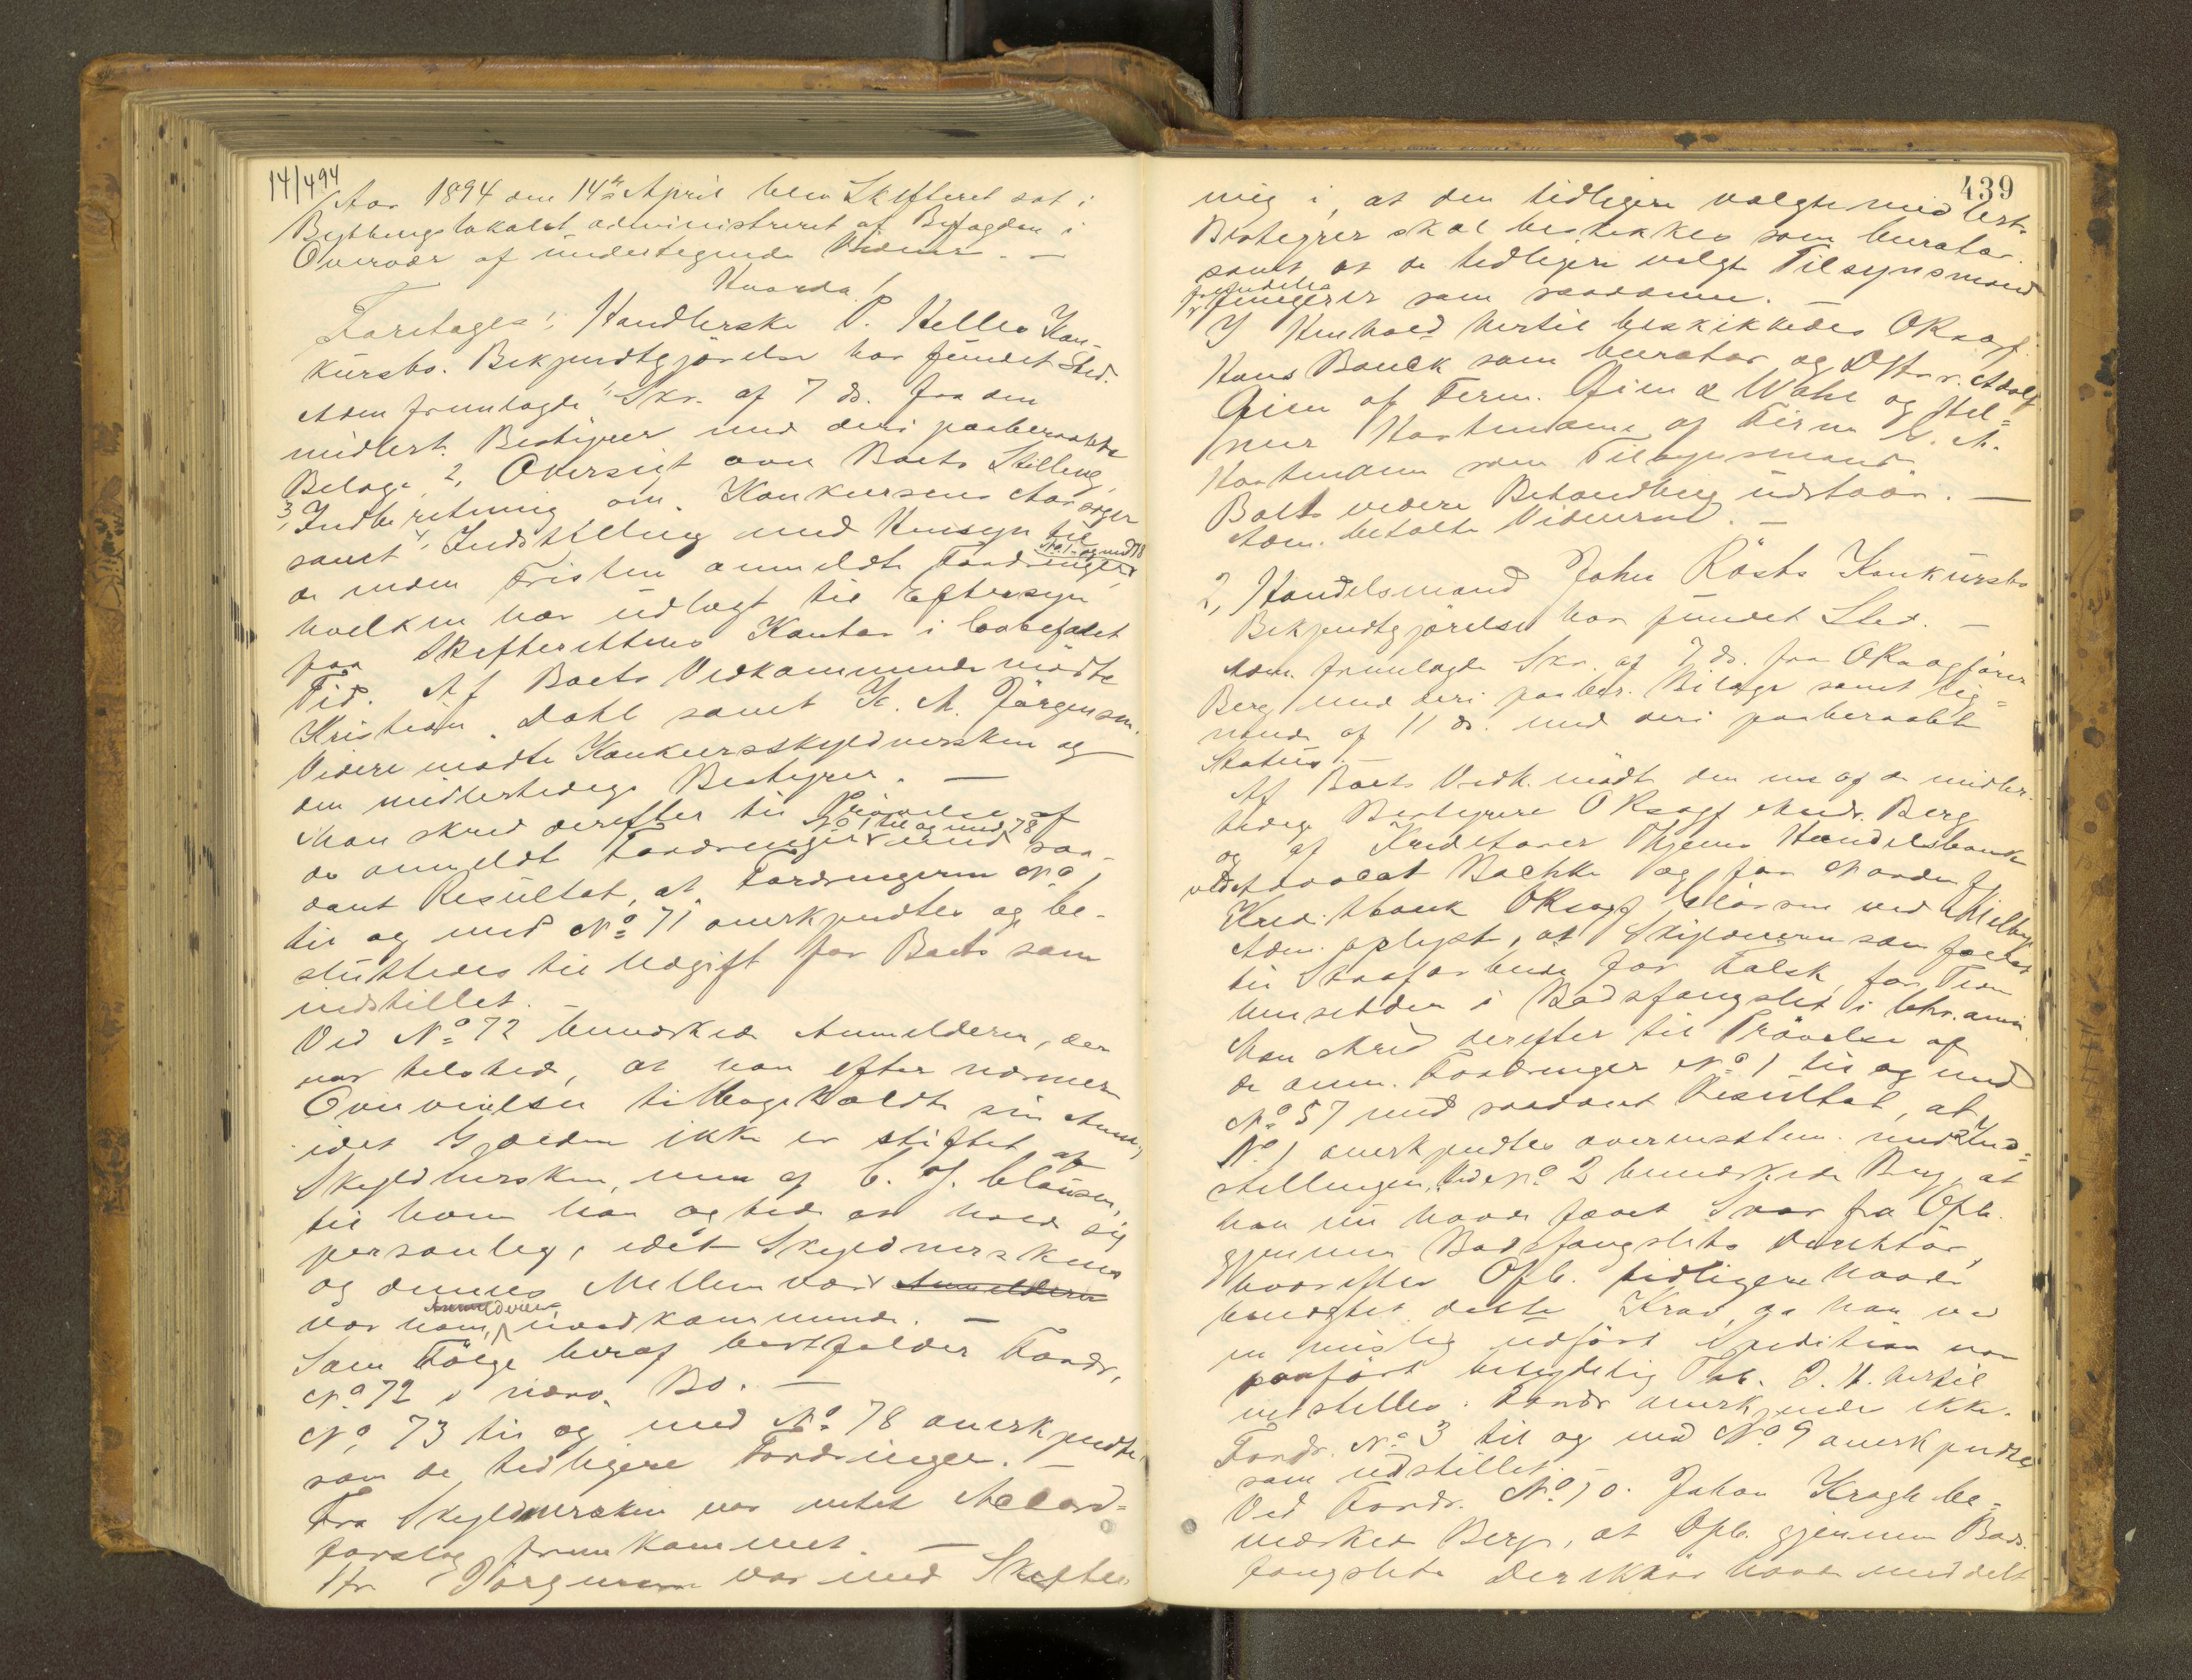 14/4 94
Aar 1894 den 14de April blev Skifteret sat i
Bythingslokalet administreret af Byfogden i
Overvær af undertegnede Vidner. —
Hvorda!
Foretoges: 1, Handlerske P. Helles Kon-
kursbo. Bekjendtgjörelse har fundet Sted.
Adm fremlagde 1, Skr. af 7 ds. fra den
midlert. Bestyrer med deri paaberaabte
Bilage, 2, Oversigt over Boets Stilling,
3, Indberetning om Konkursens Aarsager
samt 4, Indstilling med Hensyn til
de inden Fristen anmeldte Fordringer No 1 - og med 78
hvilken har udlagt til Eftersyn
paa Skifterettens Kontor i lovbefalet
Tid. Af Boets Vedkommende mödte
Kristian Dahl samt K. A. Jörgensen.
Videre mödte Konkursskyldnersken og
den midlertidige Bestyrer. —
Man skred derefter til Prövelse af
de anmeldte Fordringer No 1 til og med 78 med saa-
dant Resultat, at Fordringerne No 1
til og med No 71 anerkjendtes og be-
sluttedes til Udgift for Boet som
indstillet. —
Ved No 72 bemærkede Anmelderen, der
var tilsted, at han efter nærmere
Overveielse tilbageholdt sin Anm,
idet Gjælden ikke er stiftet af
Skyldnersken, men af C. J. Clausen,
til hvem han agtede at holde sig
personlig, idet Skyldnerskens
og dennes Mellemvær Anmelderen
var ham, Anmelderen uvedkommende. —
Som Fölge heraf bortfalder Fordr.
No 72 i nærv. Bo. —
No 73 til og med No 78 anerkjendtes
som de tidligere Fordringer. —
Fra Skyldnersken var intet Akkord-
forslag fremkommet. —
Hr Jörgensen var med Skifter
439
mig i, at den tidligere valgte midlert.
Bestyrer skal beskikkes som Curator
samt at de tidligere valgte Tilsynsmænd
fremdeles fungerer som saadanne. —
I Henhold hertil beskikkedes ORsagf.
Hans Bauck som Curator og D'Hrr. Adolf
Öien af Firm. Öien & Wahl og Hil-
mer Hartmann af Firma A.
Hartmann som Tilsynsmænd.
Boets videre Behandling udstaar. —
Adm. betalte Vidnerne. —
2, Handelsmand John Rösts Konkursbo
Bekjendtgjörelse har fundet Sted. —
Adm. fremlagde Skr. af 7 ds. fra ORsagförer
Berg med deri paaber. Bilage samt lig-
nende af 11 ds. med deri paaberaabt
Status. —
Af Boets Vedk. mödte den ene af de midler-
tidige Bestyrere ORsagf Berg
og af Kreditorer Thjems Handelsbank
ved Advocat Bachke og for Nordenfj
Kred.bank ORsagf ved
Adm. oplyste, at Skyldneren som
til Strafarbeide for Falsk, for Tiden
hensidder i Bodsfængslet i Chr.ania
Man skred derefter til Prövelse af
de anm. Fordringer No 1 til og med
No 57 med saadant Resultat, at
No 1 anerkjendtes overensstem. med Ind-
stillingen, Ved No 2 bemærkede Berg, at
han nu havde faaet Svar fra Opb.
gjennem Bodsfængslets Direktör,
hvorefter Opb. tidligere havde
benægtet dette Krav, da han ved
en mislig udfört Expedition var
paafört betydelig Tab. I H. hertil
indstilles: Fordr anerkjendes ikke.
Fordr. No 3 til og med No 9 anerkjendtes
som indstillet. —
Ved Fordr. No 10. Johan Kragh be-
mærkede Berg, at Opb. gjennem Bods-
fængslets Direktör havde meddelt